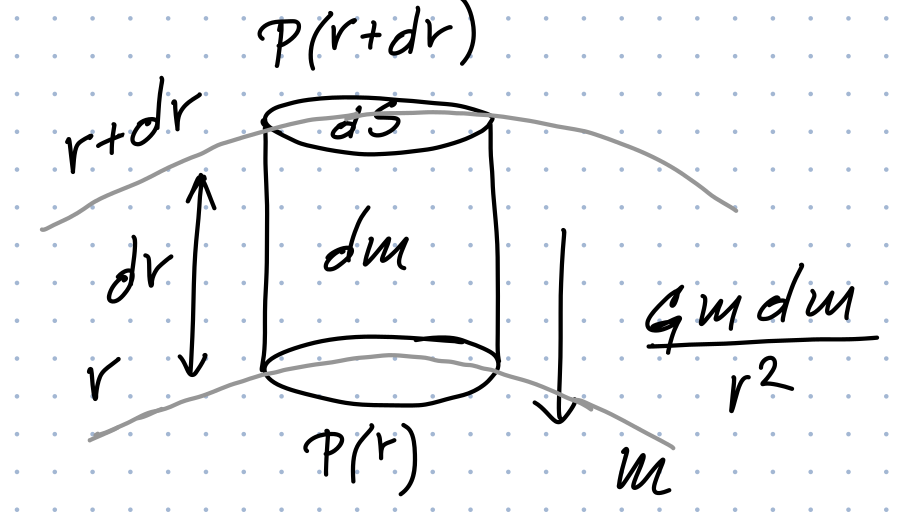 P(r+dr)
r+dr
dS
dr
dm
G m dm
r²
r
P(r)
m